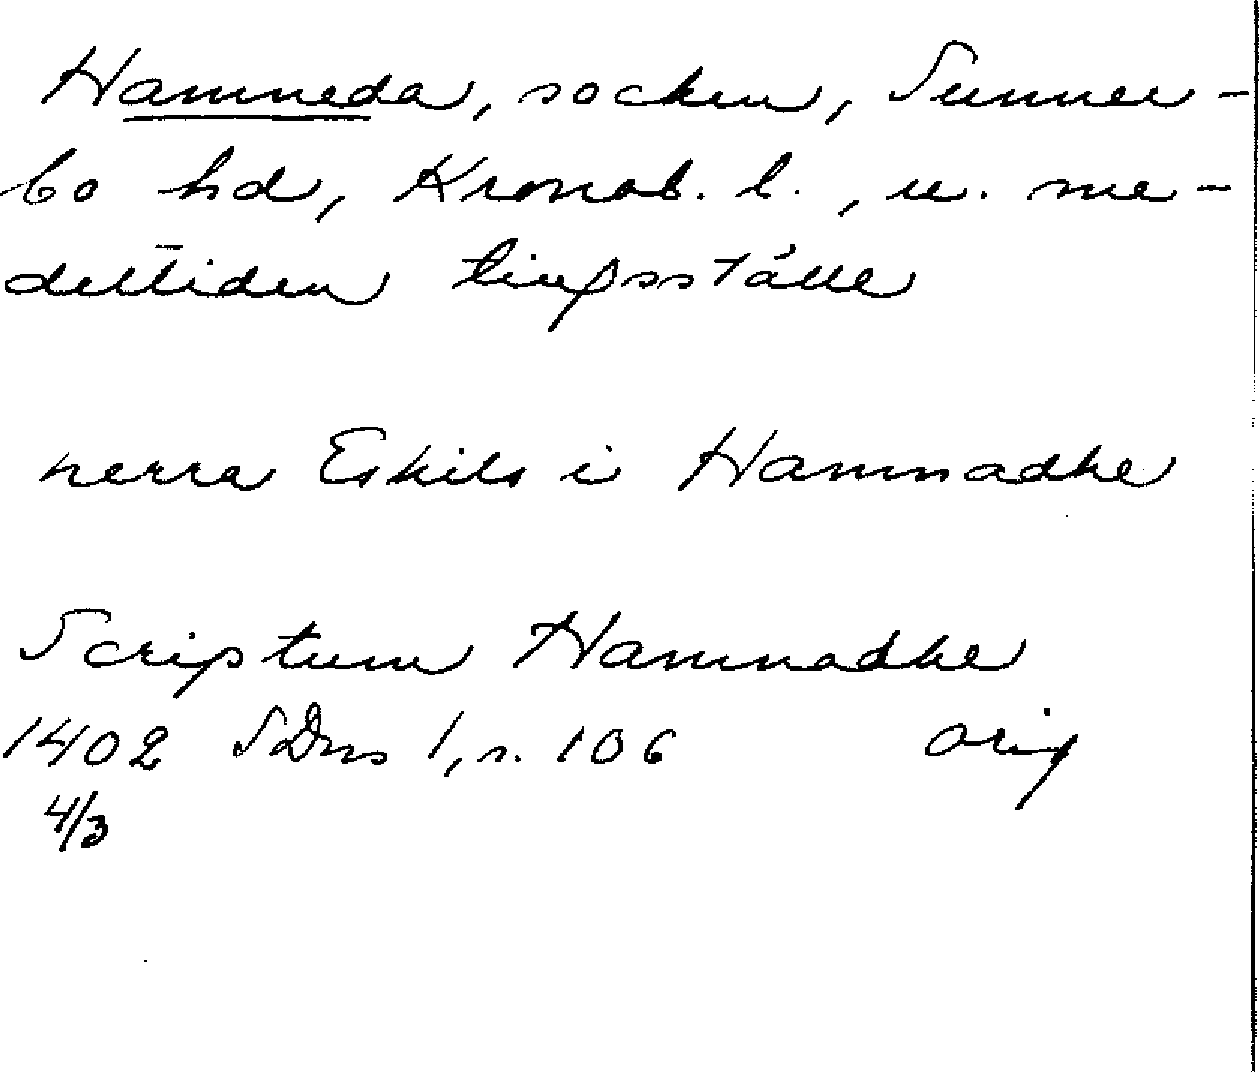 Hamneda, socken, Sunner-
bo hd, Kronob. l., u. me-
deltiden tingsställe
herra Eskils i Hamnadhe
Scriptum Hamnadhe
1402 SDns 1, s. 106 orig
4/3